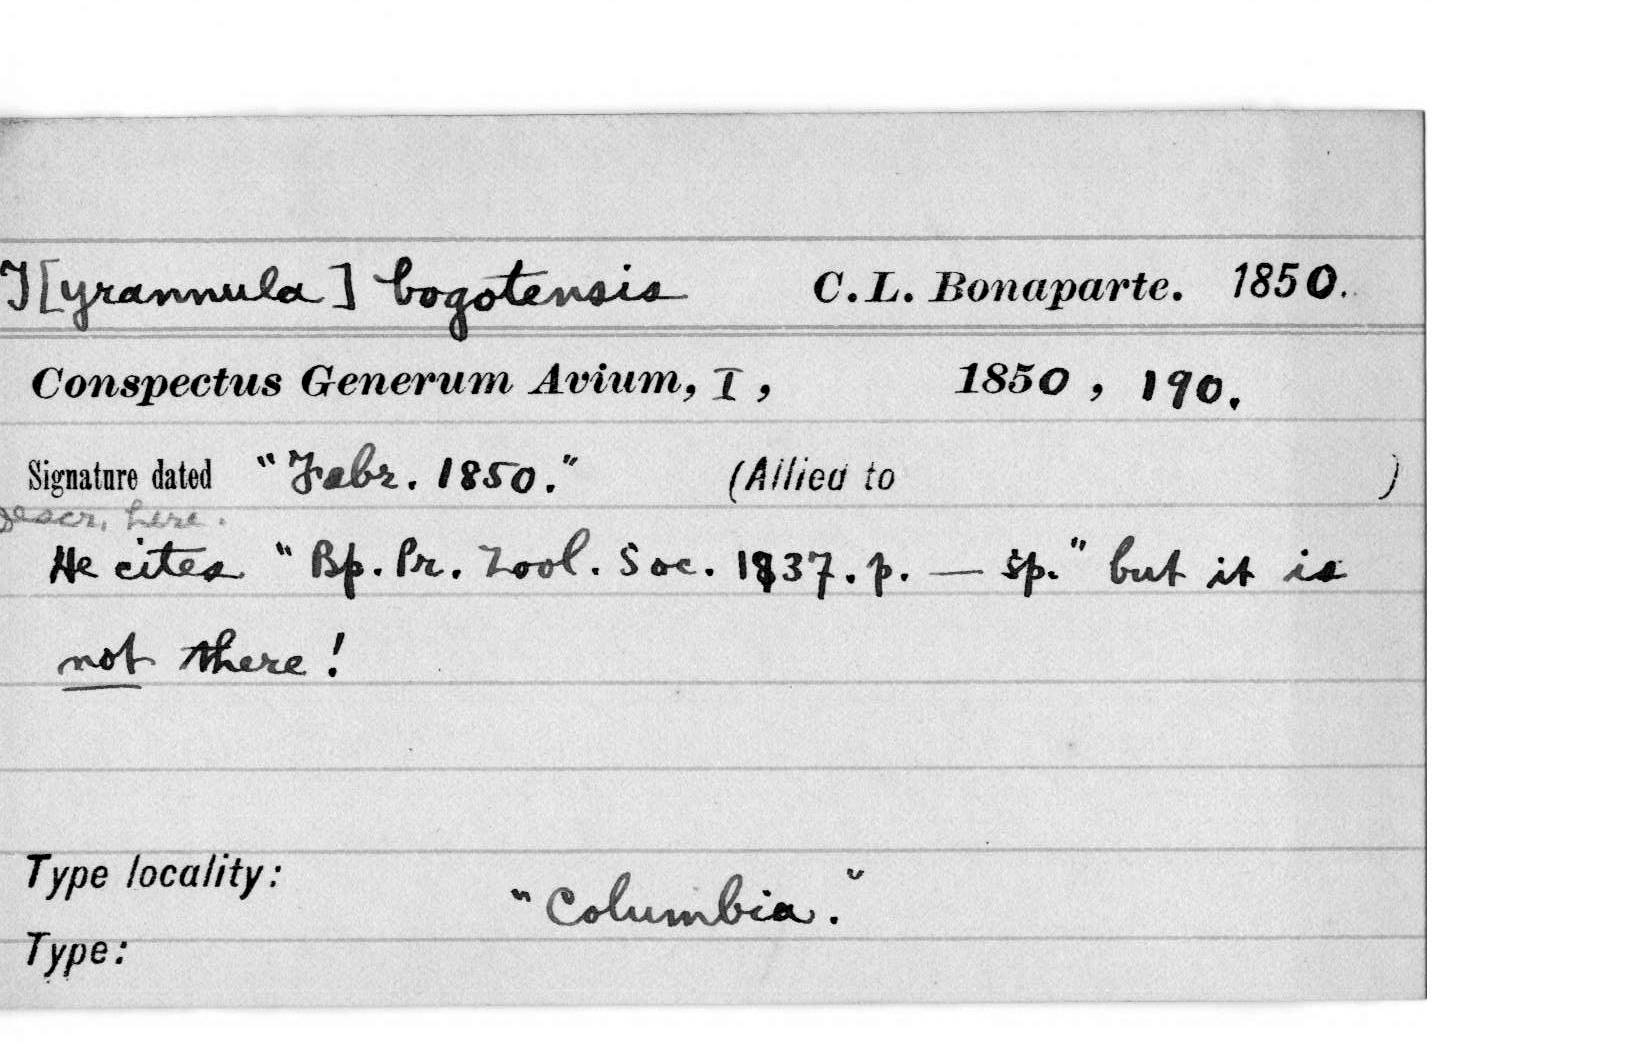 T[yrannula] bogotensis C. L. Bonaparte. 1850.
Conspectus Generum Avium, I, 1850, 190.
Signature dated "Febr. 1850." (Allied to )
Descr. here.
He cites "Bp. Pr. Zool. Soc. 1837. p. — sp." but it is
not there!
Type locality:
"Columbia."
Type: